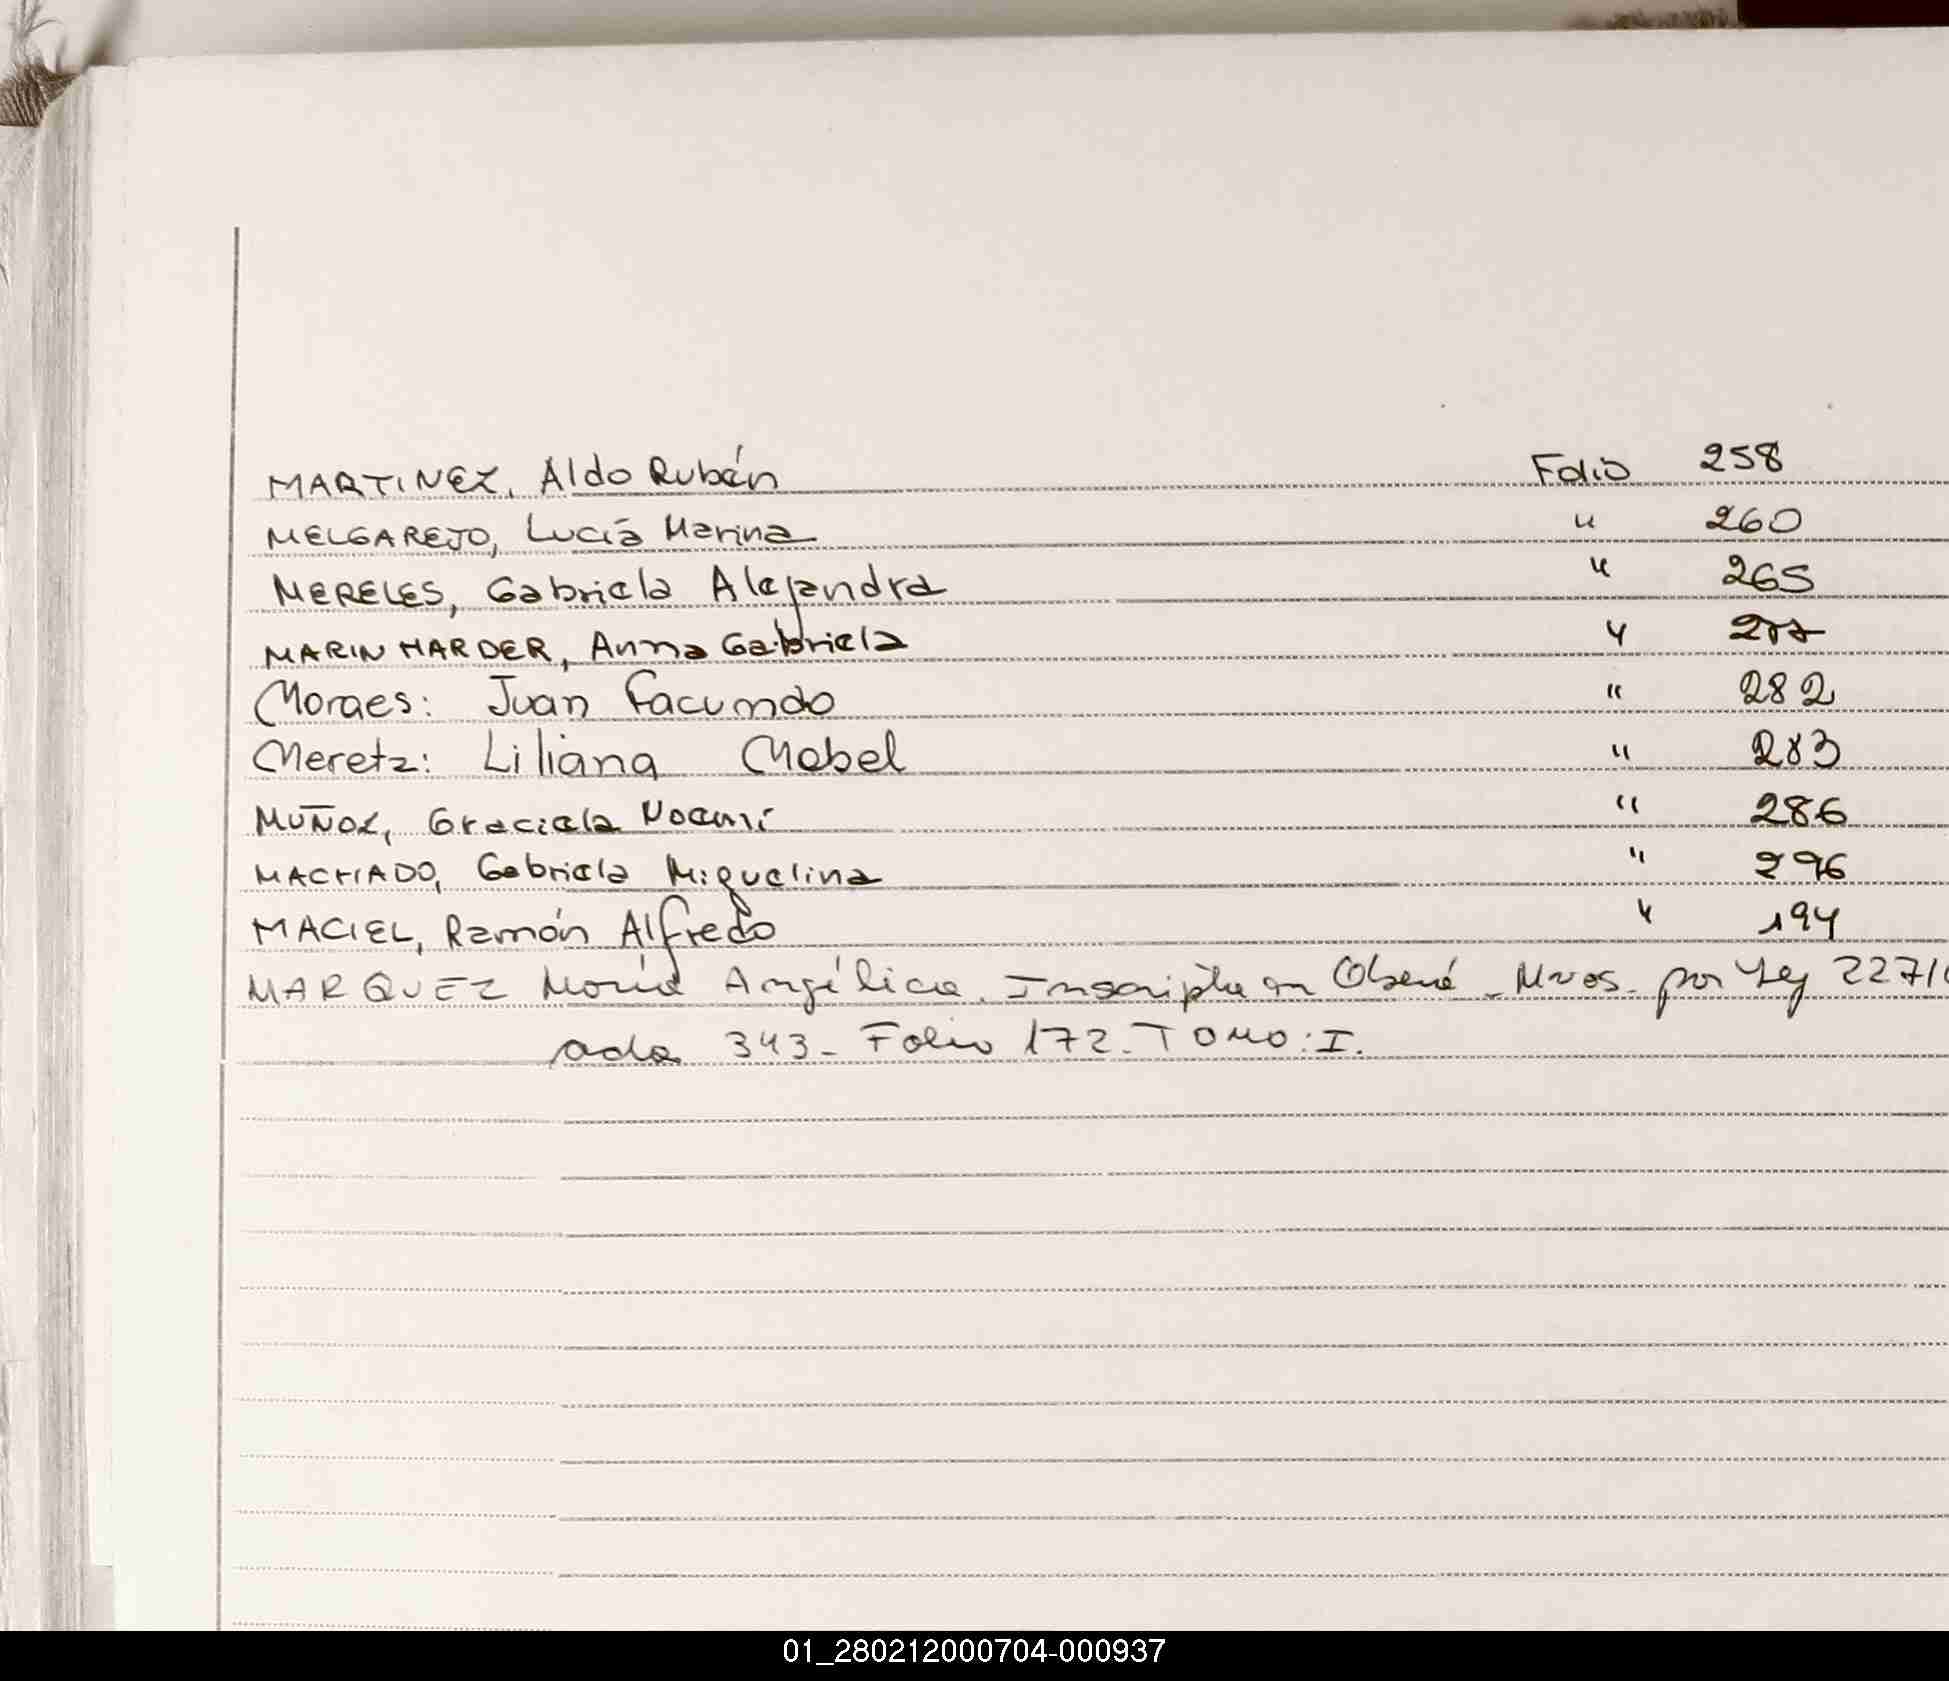 MARTINEZ, Aldo Rubén Folio 258
MELGAREJO, Lucía Marina " 260
MERELES, Gabriela Alejandra " 265
MARIN HARDER, Anna Gabriela " 277
Moraes: Juan Facundo " 282
Meretz: Liliana Mabel " 283
MUÑOZ, Graciela Noemí " 286
MACHADO, Gabriela Miguelina " 296
MACIEL, Ramón Alfredo " 194
MARQUEZ María Angélica. Inscripta en Oberá - Mnes. por Ley 2271
acta 343 - Folio 172. TOMO: I.
01_280212000704-000937